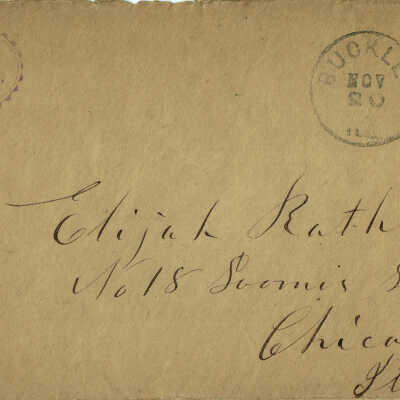 BUCKLE
NOV
20
ILL
Elijah Rath
No 18 Loomis S
Chica
Il